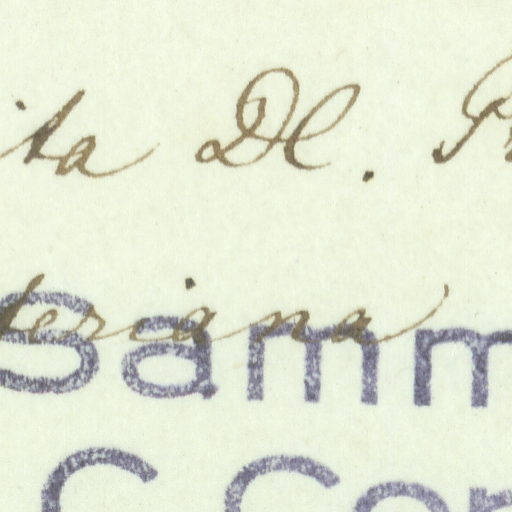 ita Dl. P
teriana
Samm
C Con